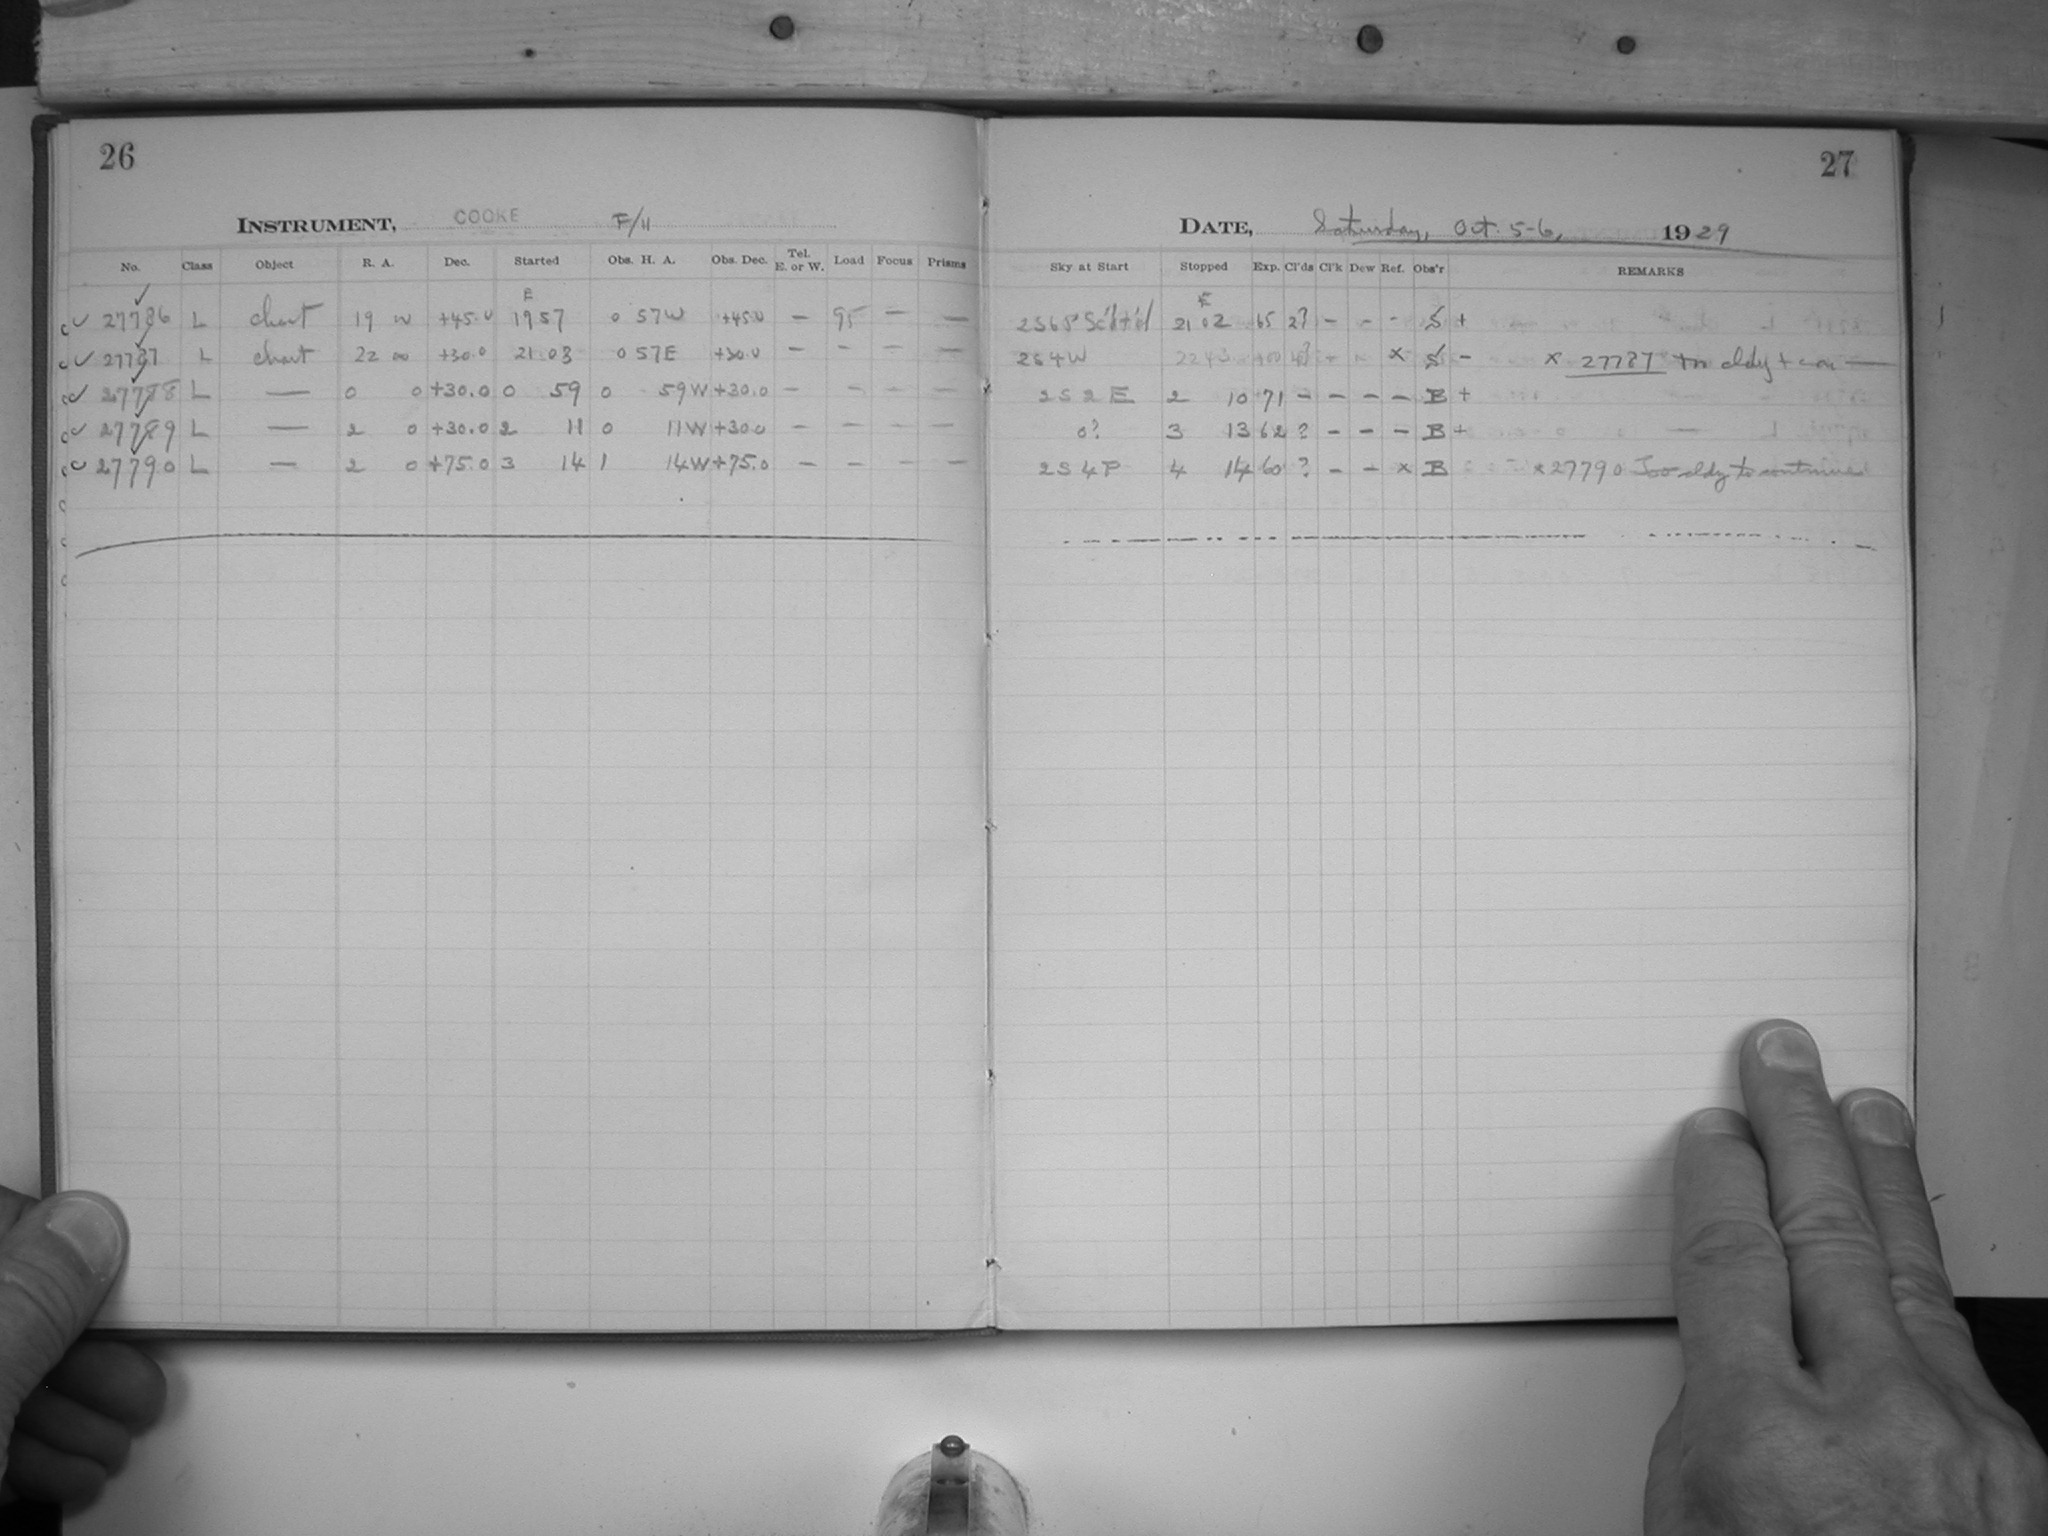 26
INSTRUMENT, COOKE F/11
No. Class Object R. A. Dec. Started Obs. H. A. Obs. Dec. Tel. E. or W. Load Focus Prisms
E
✓ 27786 L chart 19 00 +45.0 19 57 0 57W +45.0 — 95 — —
✓ 27787 L chart 22 00 +30.0 21 03 0 57E +30.0 — — — —
✓ 27788 L — 0 0 +30.0 0 59 0 59W +30.0 — — — —
✓ 27789 L — 2 0 +30.0 2 11 0 11W +30.0 — — — —
✓ 27790 L — 2 0 +75.0 3 14 1 14W +75.0 — — — —
27
DATE, Saturday, Oct. 5-6, 1929
Sky at Start Stopped Exp. Cl'ds Cl'k Dew Ref. Obs'r REMARKS
21 02 65 2? - - - S +
2S4W 22 43 × S - × 27787 cldy +
2S2E 2 10 71 - - - - B +
0? 3 13 62 ? - - - B +
2S4P 4 14 60 ? - - × B × 27790 Too cldy to continue